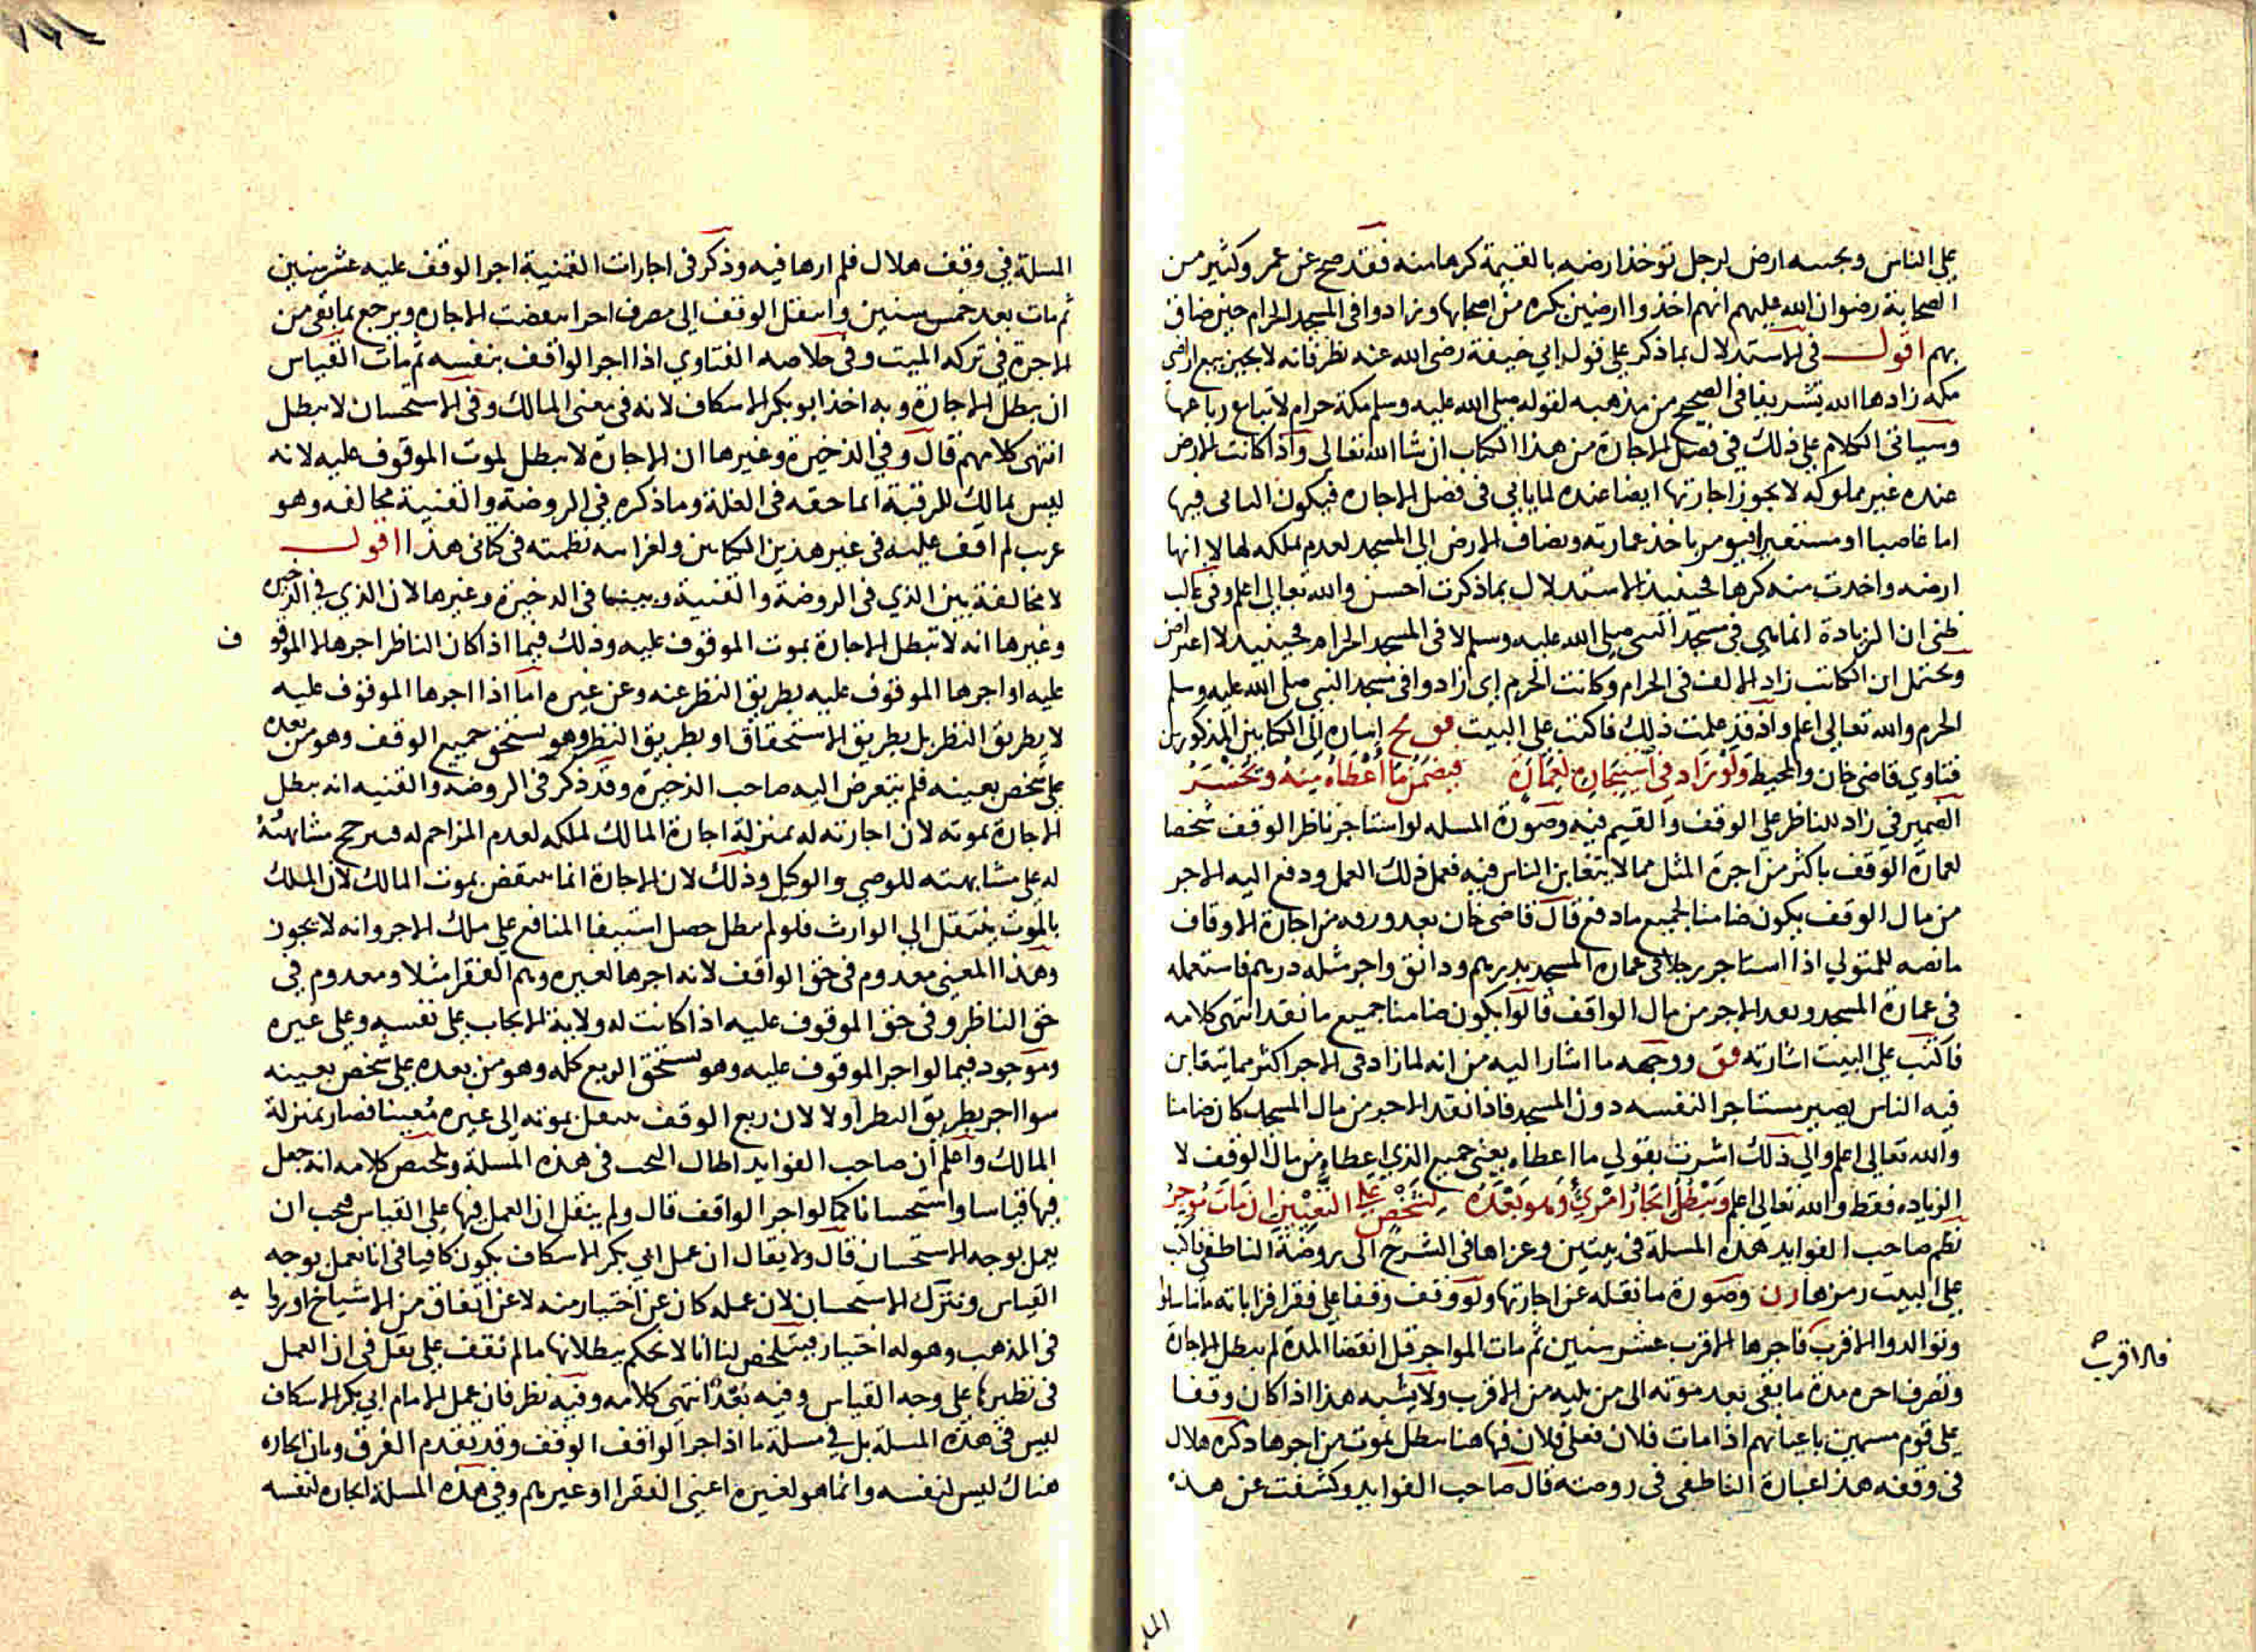 على الناس وبجنبه ارض لرجل توخذ ارضه بالقيمة كرها منه فقد صح عن عمر وكثير من
الصحابة رضوان الله عليهم انهم اخذوا ارضين بكره من اصحابها وزادوا في المسجد الحرام حين ضاق
بهم اقول في الاستدلال بما ذكر على قول ابي حنيفة رضى الله عنه نظر فانه لا يجيز بيع اراضي
مكة زادها الله تشريفا في الصحيح من مذهبه لقوله صلى الله عليه وسلم مكة حرام لا تباع رباعها
وسياتى الكلام على ذلك في فصل الاجارة من هذا الكتاب ان شا الله تعالى واذا كانت الارض
عنده غير مملوكه لا يجوز اجارتها ايضا عنده لما ياتي في فصل الاجاره فيكون البانى فيها
اما غاصبا او مستعيرا فيومر باخذ عمارته وتضاف الارض الى المسجد لعدم ملكه لها لا انها
ارضه واخذت منه كرها فحينيذ الاستدلال بما ذكرت احسن والله تعالى اعلم وفي غالب
ظنى ان الزيادة انما هي في مسجد النبي صلى الله عليه وسلم لا في المسجد الحرام فحينيذ لا اعتراض
ويحتمل ان الكاتب زاد الالف في الحرام وكانت الحرم اى زادوا في مسجد النبي صلى الله عليه وسلم
الحرم والله تعالى اعلم واذ قد علمت ذلك فاكتب على البيت فق مح اشاره الى الكتابين المذكورين
فتاوي قاضي خان والمحيط ولو زاد في استيجاره لعمارة فيضمن ما اعطاه منه ويخسر
الضمير في زاد للناظر على الوقف والقيم فيه وصورة المسله لو استاجر ناظر الوقف شخصا
لعمارة الوقف باكثر من اجرة المثل مما لا يتغابن الناس فيه فعمل ذلك العمل ودفع اليه الاجر
من مال الوقف يكون ضامنا لجميع ما دفع قال قاضي خان بعد ورقه من اجارة الاوقاف
ما نصه للمتولي اذا استاجر رجلا في عمارة المسجد بدرهم ودانق واجر مثله درهم فاستعمله
في عمارة المسجد ونقد الاجر من مال الواقف قالوا يكون ضامنا جميع ما نقد انتهى كلامه
فاكتب على البيت اشارته فق ووجهه ما اشار اليه من انه لما زاد في الاجر اكثر مما يتغابن
فيه الناس يصير مستاجرا لنفسه دون المسجد فاذا نقد الاجر من مال المسجد كان ضامنا
والله تعالى اعلم والى ذلك اشرت بقولي ما اعطاه يعني جميع الذي اعطاه من مال الوقف لا
الزياده فقط والله تعالى اعلم ويبطل ايجار امرئ وهو بعده لشخص على التعيين ان مات موجر
نظم صاحب الفوايد هذه المسلة في بيتين وعزاها في الشرح الى روضة الناطفي فاكتب
على البيت رمزها رن وصورة ما نقله عن اجارتها ولو وقف وقفا على فقرا قراباته ما تناسلوا
وتوالدوا الاقرب فاجرها الاقرب عشر سنين ثم مات المواجر قبل انقضا المدة لم يبطل الاجارة
وتصرف اجره مدة ما بقى بعد موته الى من يليه من الاقرب ولا يشبه هذا اذا كان وقفا
على قوم مسمين باعيانهم اذا مات فلان فعلى فلان فها هنا يبطل بموت من اجرها ذكره هلال
في وقفه هذا عبارة الناطفي في روضته قال صاحب الفوايد وكشفت عن هذه
فالاقرب
المسلة في وقف هلال فلم ارها فيه وذكر في اجارات القنية اجر الوقف عليه عشر سنين
ثم مات بعد خمس سنين وانتقل الوقف الى مصرف اخر انتقضت الاجاره ويرجع بما بقى من
الاجرة في تركه الميت وفي خلاصه الفتاوي اذا اجر الواقف بنفسه ثم مات القياس
ان يبطل الاجارة وبه اخذ ابو بكر الاسكاف لانه في معنى المالك وفي الاستحسان لا يبطل
انتهى كلامهم قال وفي الذخيرة وغيرها ان الاجارة لا يبطل بموت الموقوف عليه لانه
ليس بمالك للرقبة انما حقه في الغلة وما ذكره في الروضة والقنية مخالفه وهو
غريب لم اقف عليه في غير هذين الكتابين ولغرابته نظمته في كتابي هذا اقول
لا مخالفة بين الذي في الروضة والقنية وبينما في الدخيرة وغيرها لان الذي في الذخيره
وغيرها انه لا تبطل الاجارة بموت الموقوف عليه وذلك فيما اذا كان الناظر اجرها لا الموقو ف
عليه او اجرها الموقوف عليه بطريق النظر عنه وعن غيره اما اذا اجرها الموقوف عليه
لا بطريق النظر بل بطريق الاستحقاق او بطريق النظر وهو يستحق جميع الوقف وهو من بعده
على شخص بعينه فلم يتعرض اليه صاحب الذخيرة وقد ذكر في الروضه والقنيه انه يبطل
الاجارة بموته لان اجارته له بمنزلة اجارة المالك لملكه لعدم المزاحم له فيرجح مشابهته
له على مشابهته للوصي والوكيل وذلك لان الاجارة انما تنتقض بموت المالك لان الملك
بالموت ينتقل الى الوارث فلو لم يبطل حصل استيفا المنافع على ملك الاجر وانه لا يجوز
وهذا المعنى معدوم في حق الواقف لانه اجرها لغيره وهم الفقرا مثلا ومعدوم في
حق الناظر وفي حق الموقوف عليه اذا كانت له ولاية الايجاب على نفسه وعلى غيره
وموجود فيما لو اجر الموقوف عليه وهو يستحق الريع كله وهو من بعده على شخص بعينه
سوا اجر بطريق النظر اولا لان ريع الوقف ينتقل بموته الى غيره معينا فصار بمنزلة
المالك واعلم ان صاحب الفوايد اطال البحث في هذه المسلة وتلخيص كلامه انه جعل
فيها قياسا واستحسانا كما لو اجر الواقف قال ولم ينقل ان العمل فيها على القياس فيجب ان
يعمل بوجه الاستحسان قال ولا يقال ان عمل ابي بكر الاسكاف يكون كافيا في انا نعمل بوجه
القياس ونترك الاستحسان لان عمله كان عن اختيار منه لا عن اتفاق من الاشياخ او روا يه
في المذهب وهو له اختيار فيتلخص لنا انا لا نحكم ببطلانها ما لم نقف على نقل في ان العمل
في نظيرها على وجه القياس وفيه بعد انتهى كلامه وفيه نظر فان عمل الامام ابي بكر الاسكاف
ليس في هذه المسلة بل في مسلة ما اذا اجر الواقف الوقف وقد تقدم الفرق وبان ايجاره
هناك ليس لنفسه وانما هو لغيره اعني الفقرا او غيرهم وفي هذه المسلة ايجاره لنفسه